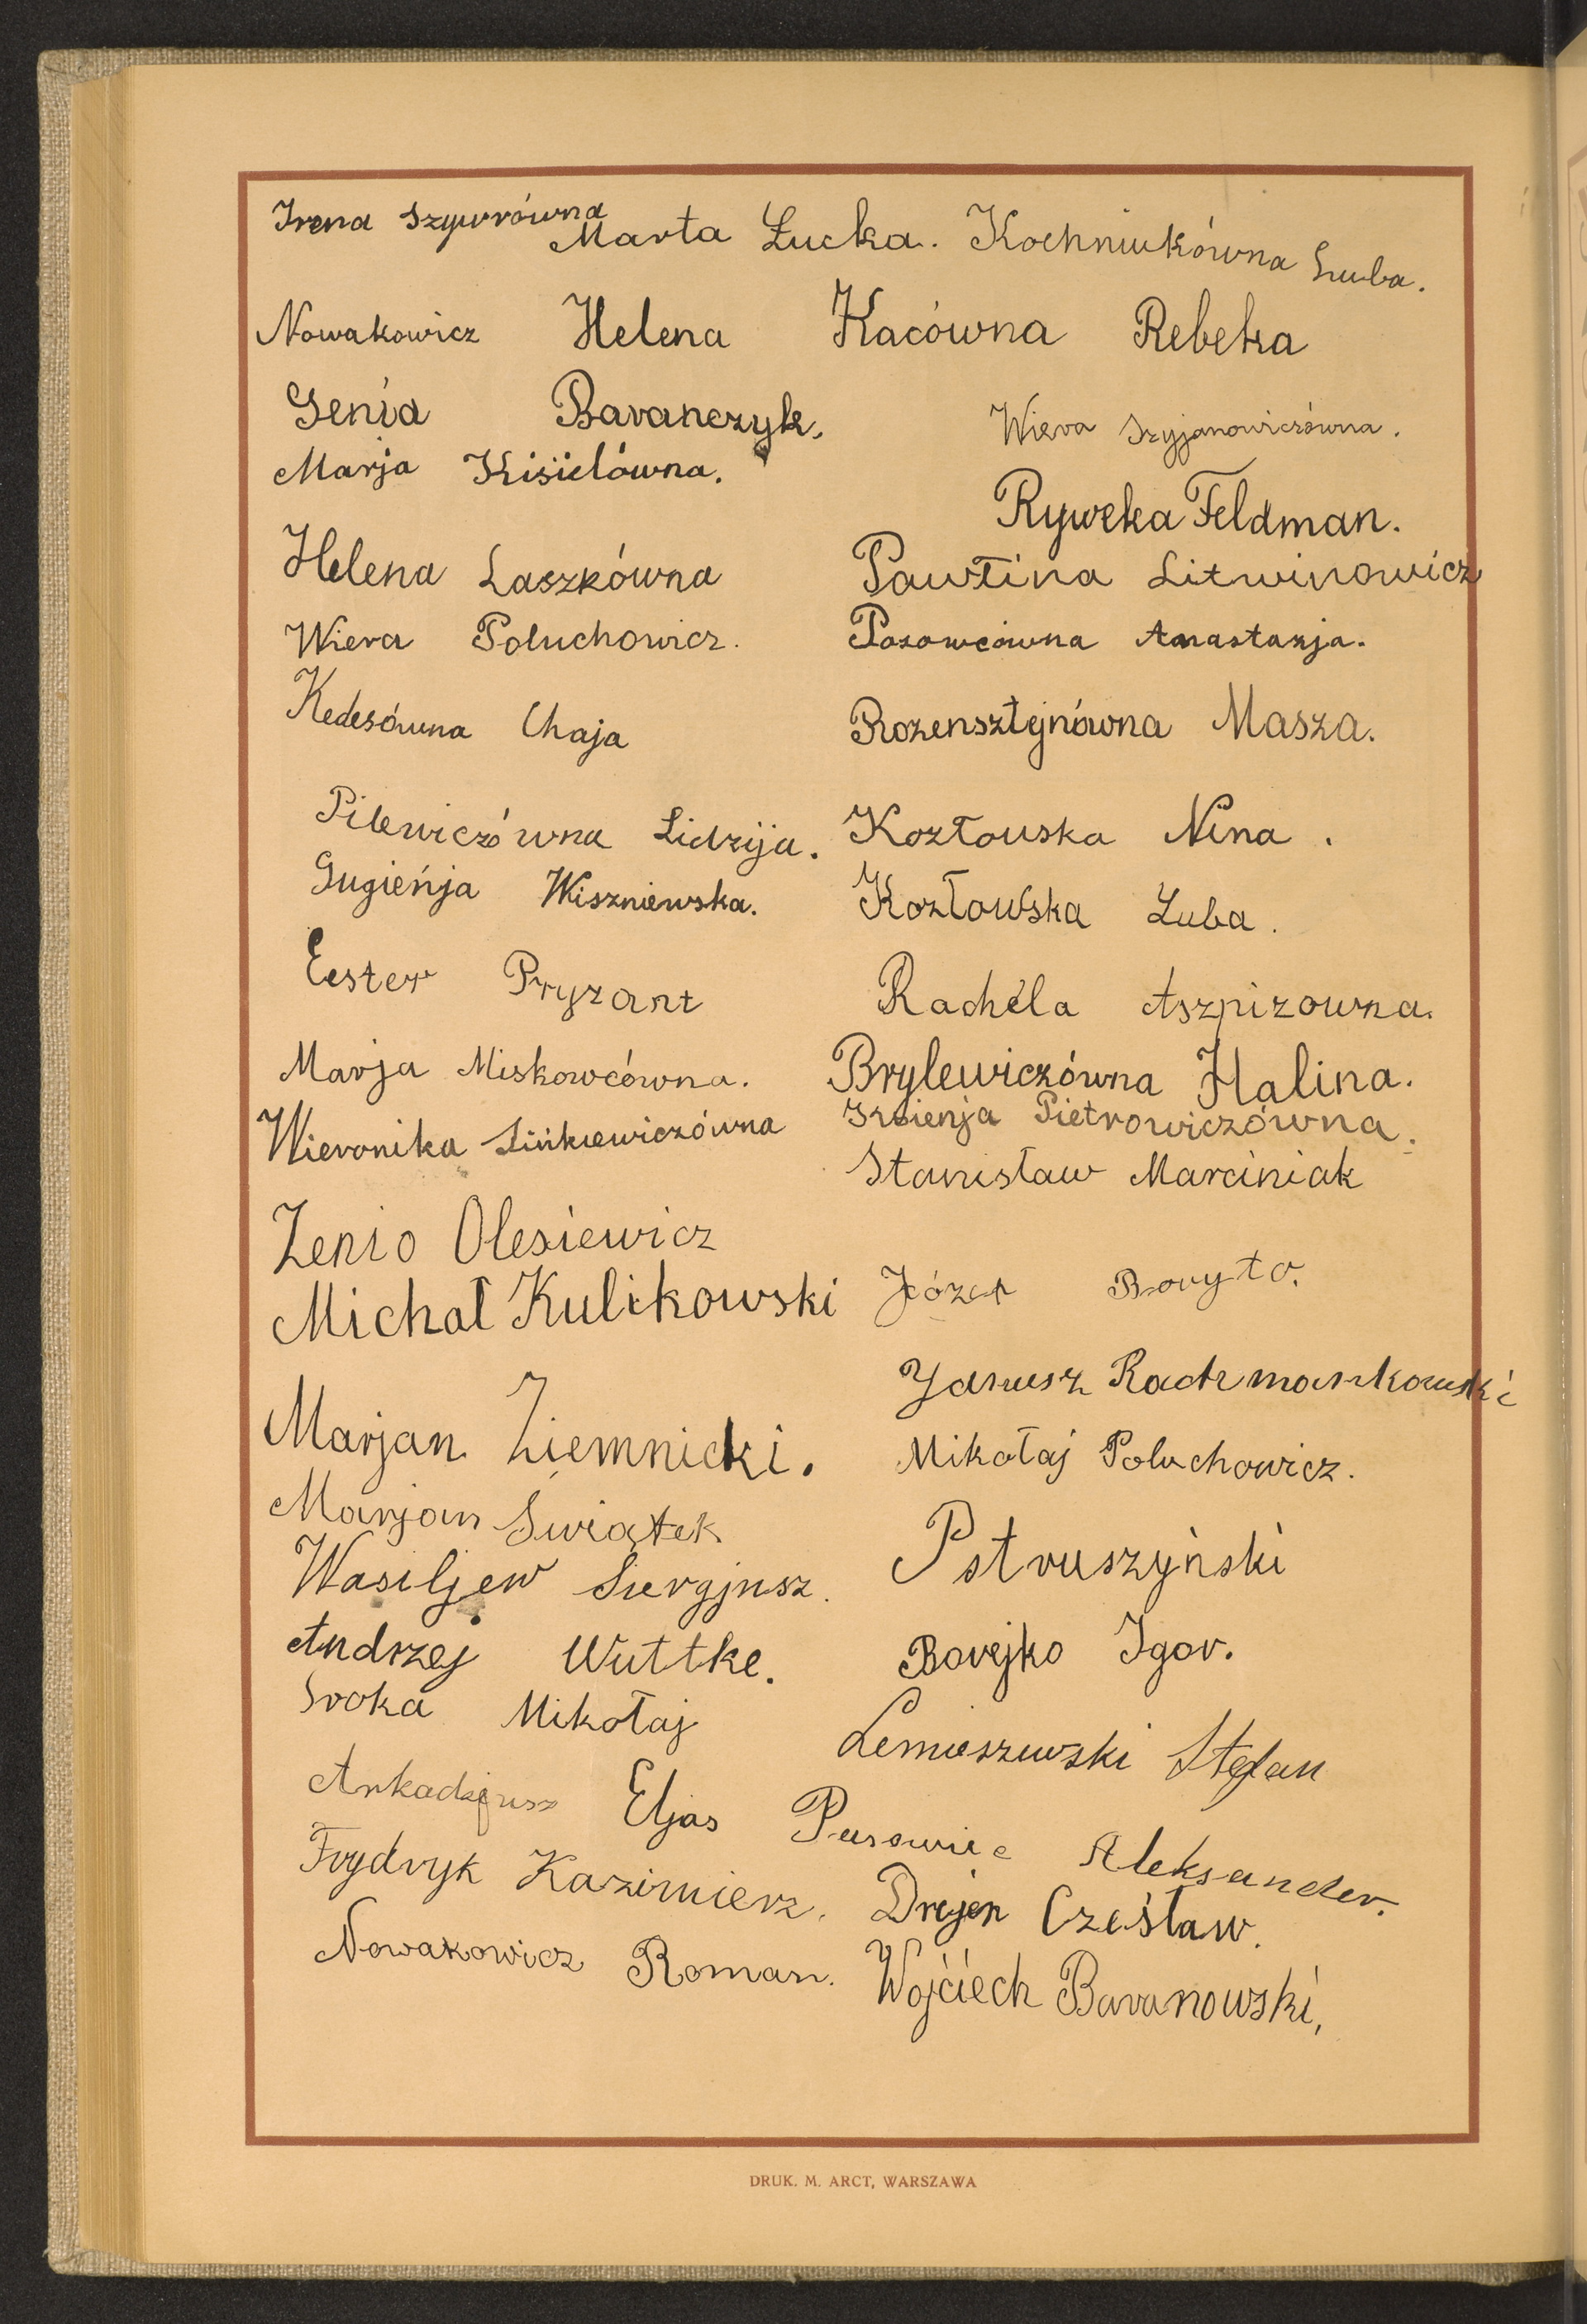 Irena Szywrówna Marta Łucka. Kochniukówna Luba.
Nowakowicz Helena Kacówna Rebeka
Genia Baranczyk. Wiera Szyjanowiczówna.
Marja Kisielówna.
Ryweka Feldman.
Helena Laszkówna Pawłina Litwinowicz
Wiera Poluchowicz. Pozowcówna Anastazja.
Kedesówna Chaja Rozensztejnówna Masza.
Pilewiczówna Lidzija. Kozłouska Nina.
Gugieńja Wiszniewska. Kozłowska Luba.
Eester Pryzant Rachela Aszpizowna.
Marja Miskowcówna. Brylewiczówna Halina.
Wieronika Sińkiewiczówna Ksienja Pietrowiczówna.
Stanisław Marciniak
Zenio Olesiewicz
Michał Kulikowski Józef Boryto.
Janusz Rachmankowski
Marjan Ziemnicki. Mikołaj Poluchowicz.
Marjan Świątek
Pstruszyński
Wasiljew Siergjusz.
Andrzej Wuttke. Borejko Igor.
Sroka Mikołaj
Lemieszewski Stefan
Arkadjusz Eljas Pusowic Aleksander.
Frydryk Kazimierz. Drejer Czesław.
Nowakowicz Roman. Wojciech Baranowski,
DRUK. M. ARCT, WARSZAWA